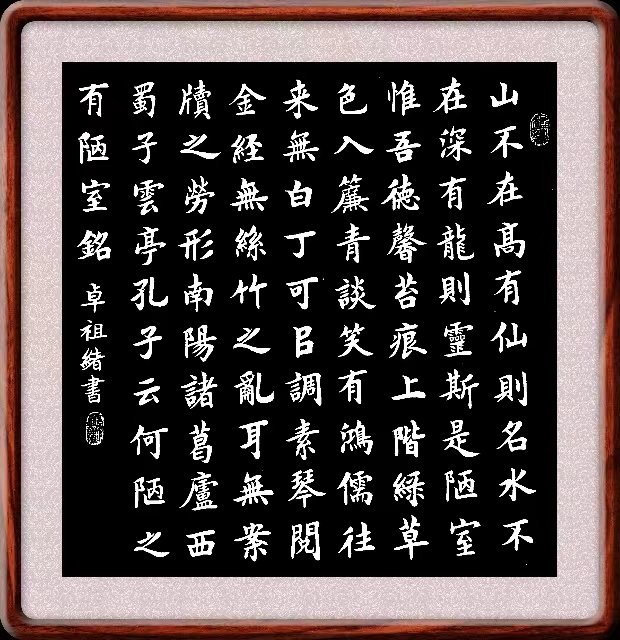 山不在髙有仙則名水不
在深有龍則靈斯是陋室
惟吾徳馨苔痕上階緑草
色入簾青談笑有鴻儒往
来無白丁可㠯調素琴閲
金經無絲竹之亂耳無案
牘之勞形南陽諸葛廬西
蜀子雲亭孔子云何陋之
有陋室銘 卓祖緒書